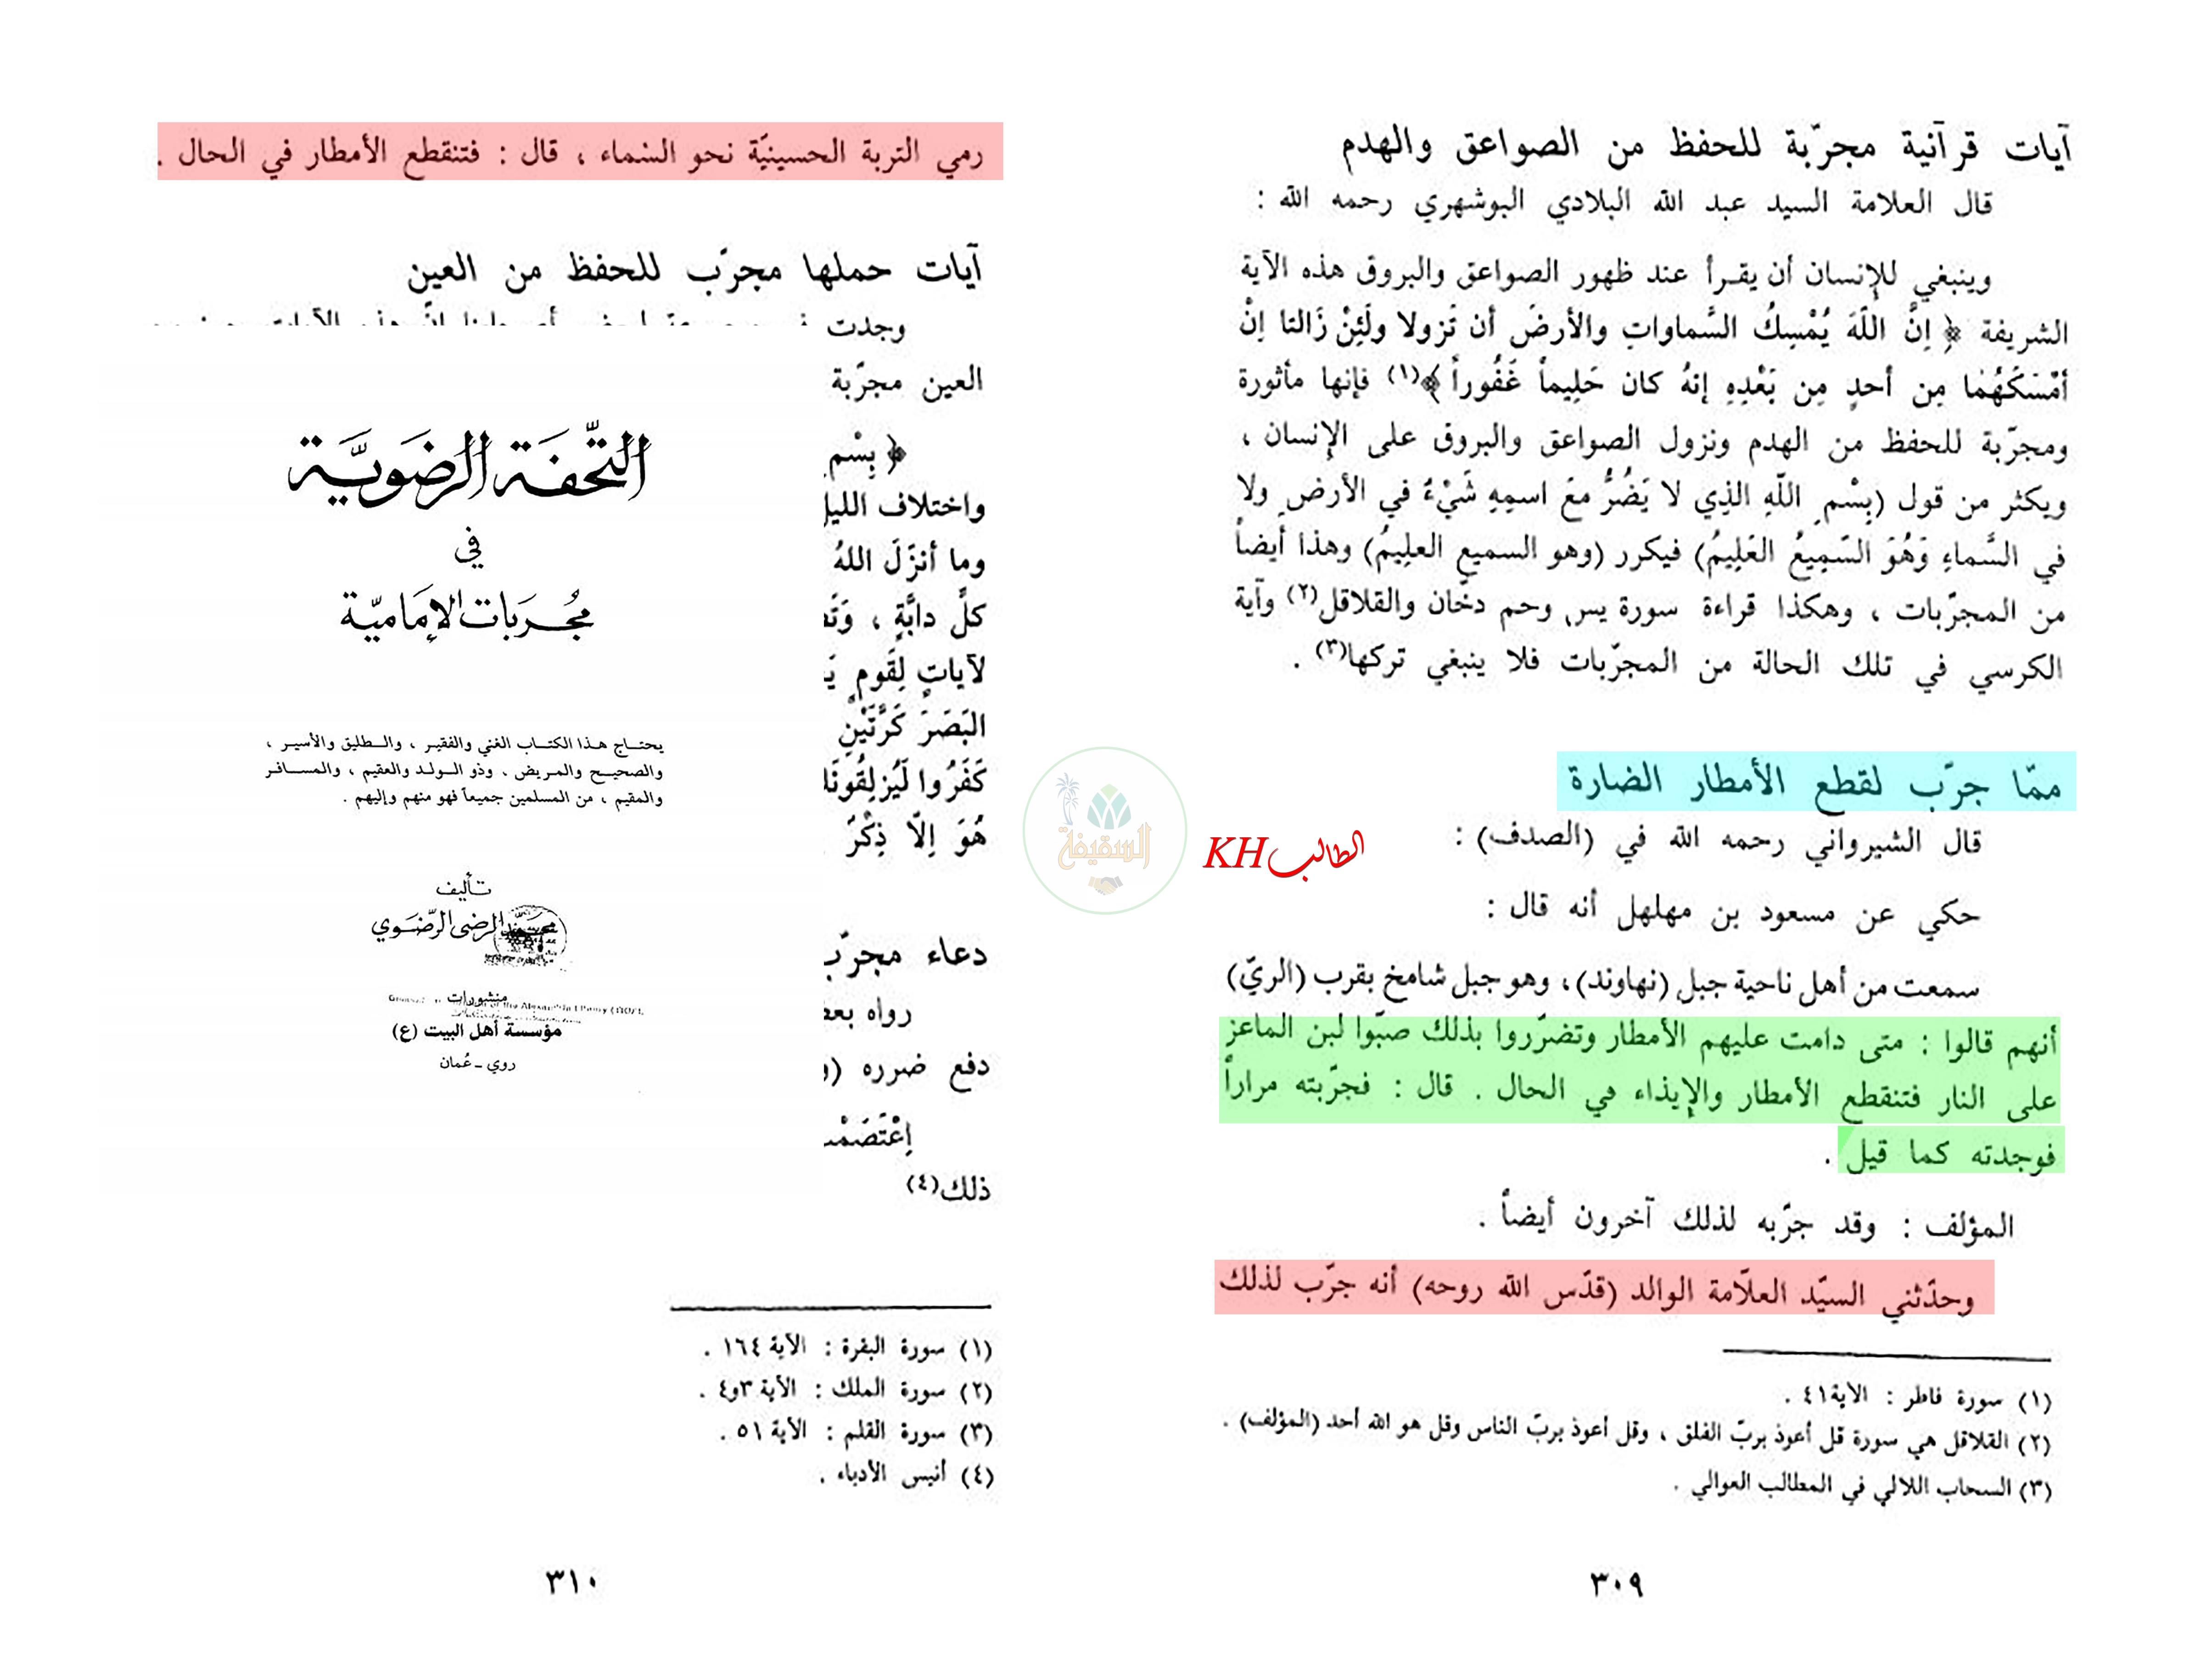 آيات قرآنية مجرّبة للحفظ من الصواعق والهدم
قال العلامة السيد عبد الله البلادي البوشهري رحمه الله :
وينبغي للإنسان أن يقرأ عند ظهور الصواعق والبروق هذه الآية
الشريفة ﴿ إِنَّ اللّهَ يُمْسِكُ السَّماواتِ والأرضَ أن تَزولا ولَئِنْ زَالتا اِنْ
أمْسَكَهُمٰا مِن أحدٍ مِن بَعْدِهِ إنهُ كان حَلِيماً غَفُوراً ﴾(١) فإنها مأثورة
ومجرّبة للحفظ من الهدم ونزول الصواعق والبروق على الإنسان ،
ويكثر من قول (بِسْمِ اللّهِ الذِي لا يَضُرُّ معَ اسمِهِ شَيْءٌ في الأرضِ ولا
في السَّماءِ وَهُوَ السَّمِيعُ العَلِيمُ) فيكرر (وهو السميع العليمُ) وهذا أيضاً
من المجرّبات ، وهكذا قراءة سورة يس وحم دخّان والقلاقل(٢) وآية
الكرسي في تلك الحالة من المجرّبات فلا ينبغي تركها(٣) .
ممّا جرّب لقطع الأمطار الضارة
قال الشيرواني رحمه الله في (الصدف) :
حكي عن مسعود بن مهلهل أنه قال :
سمعت من أهل ناحية جبل (نهاوند)، وهو جبل شامخ بقرب (الريّ)
أنهم قالوا : متى دامت عليهم الأمطار وتضرّروا بذلك صبّوا لبن الماعز
على النار فتنقطع الأمطار والإيذاء في الحال . قال : فجرّبته مراراً
فوجدته كما قيل .
المؤلف : وقد جرّبه لذلك آخرون أيضاً .
وحدّثني السيّد العلاّمة الوالد (قدّس الله روحه) أنه جرّب لذلك
(١) سورة فاطر : الآية ٤١ .
(٢) القلاقل هي سورة قل أعوذ بربّ الفلق ، وقل أعوذ بربّ الناس وقل هو الله أحد (المؤلف) .
(٣) السحاب اللالي في المطالب العوالي .
٣٠٩
الطالب KH
السقيفة
رمي التربة الحسينيّة نحو السّماء ، قال : فتنقطع الأمطار في الحال .
آيات حملها مجرّب للحفظ من العين
وجدت
العين مجرّبة
﴿ بِسْمِ
واختلاف الليل
وما أنزَلَ اللهُ
كلِّ دابَّةٍ ، وَتَص
لآياتٍ لِقَومٍ يَ
البَصَرَ كَرَّتَيْنِ
كَفَرُوا لَيُزلِقُونَكَ
هُوَ اِلّا ذِكْرٌ
دعاء مجرّب
رواه بعض
دفع ضرره (و
اِعْتَصَمْتُ
ذلك(٤)
(١) سورة البقرة : الآية ١٦٤ .
(٢) سورة الملك : الآية ٣و٤ .
(٣) سورة القلم : الآية ٥١ .
(٤) أنيس الأدباء .
٣١٠
التّحفَة الرضَويَّة
في
مُجرَبات الإمَاميّة
يحتاج هذا الكتاب الغني والفقير ، والطليق والأسير ،
والصحيح والمريض ، وذو الولد والعقيم ، والمسافر
والمقيم ، من المسلمين جميعاً فهو منهم وإليهم .
تأليف
محمد الرضي الرّضَوي
منشورات
مؤسسة أهل البيت (ع)
روي ـ عُمان